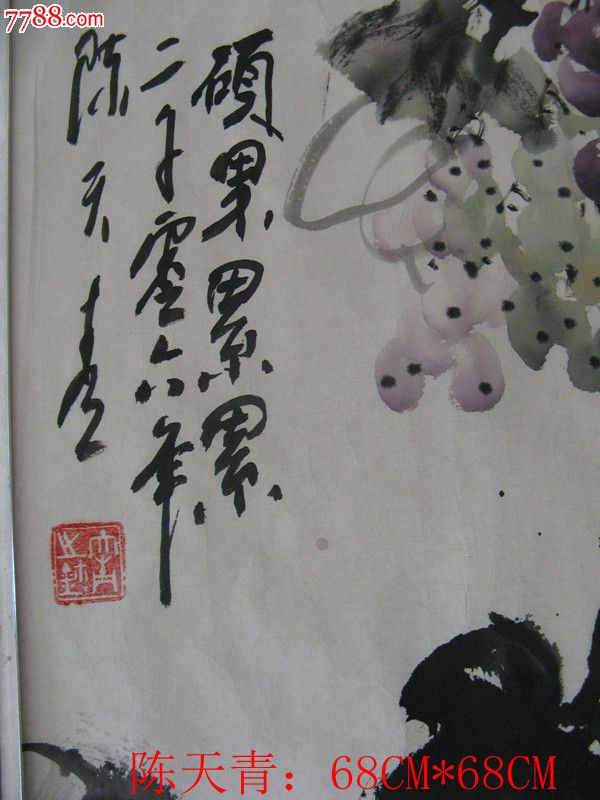 7788.com
硕果累累
二千零六年
陈天青
陈天青：68CM*68CM